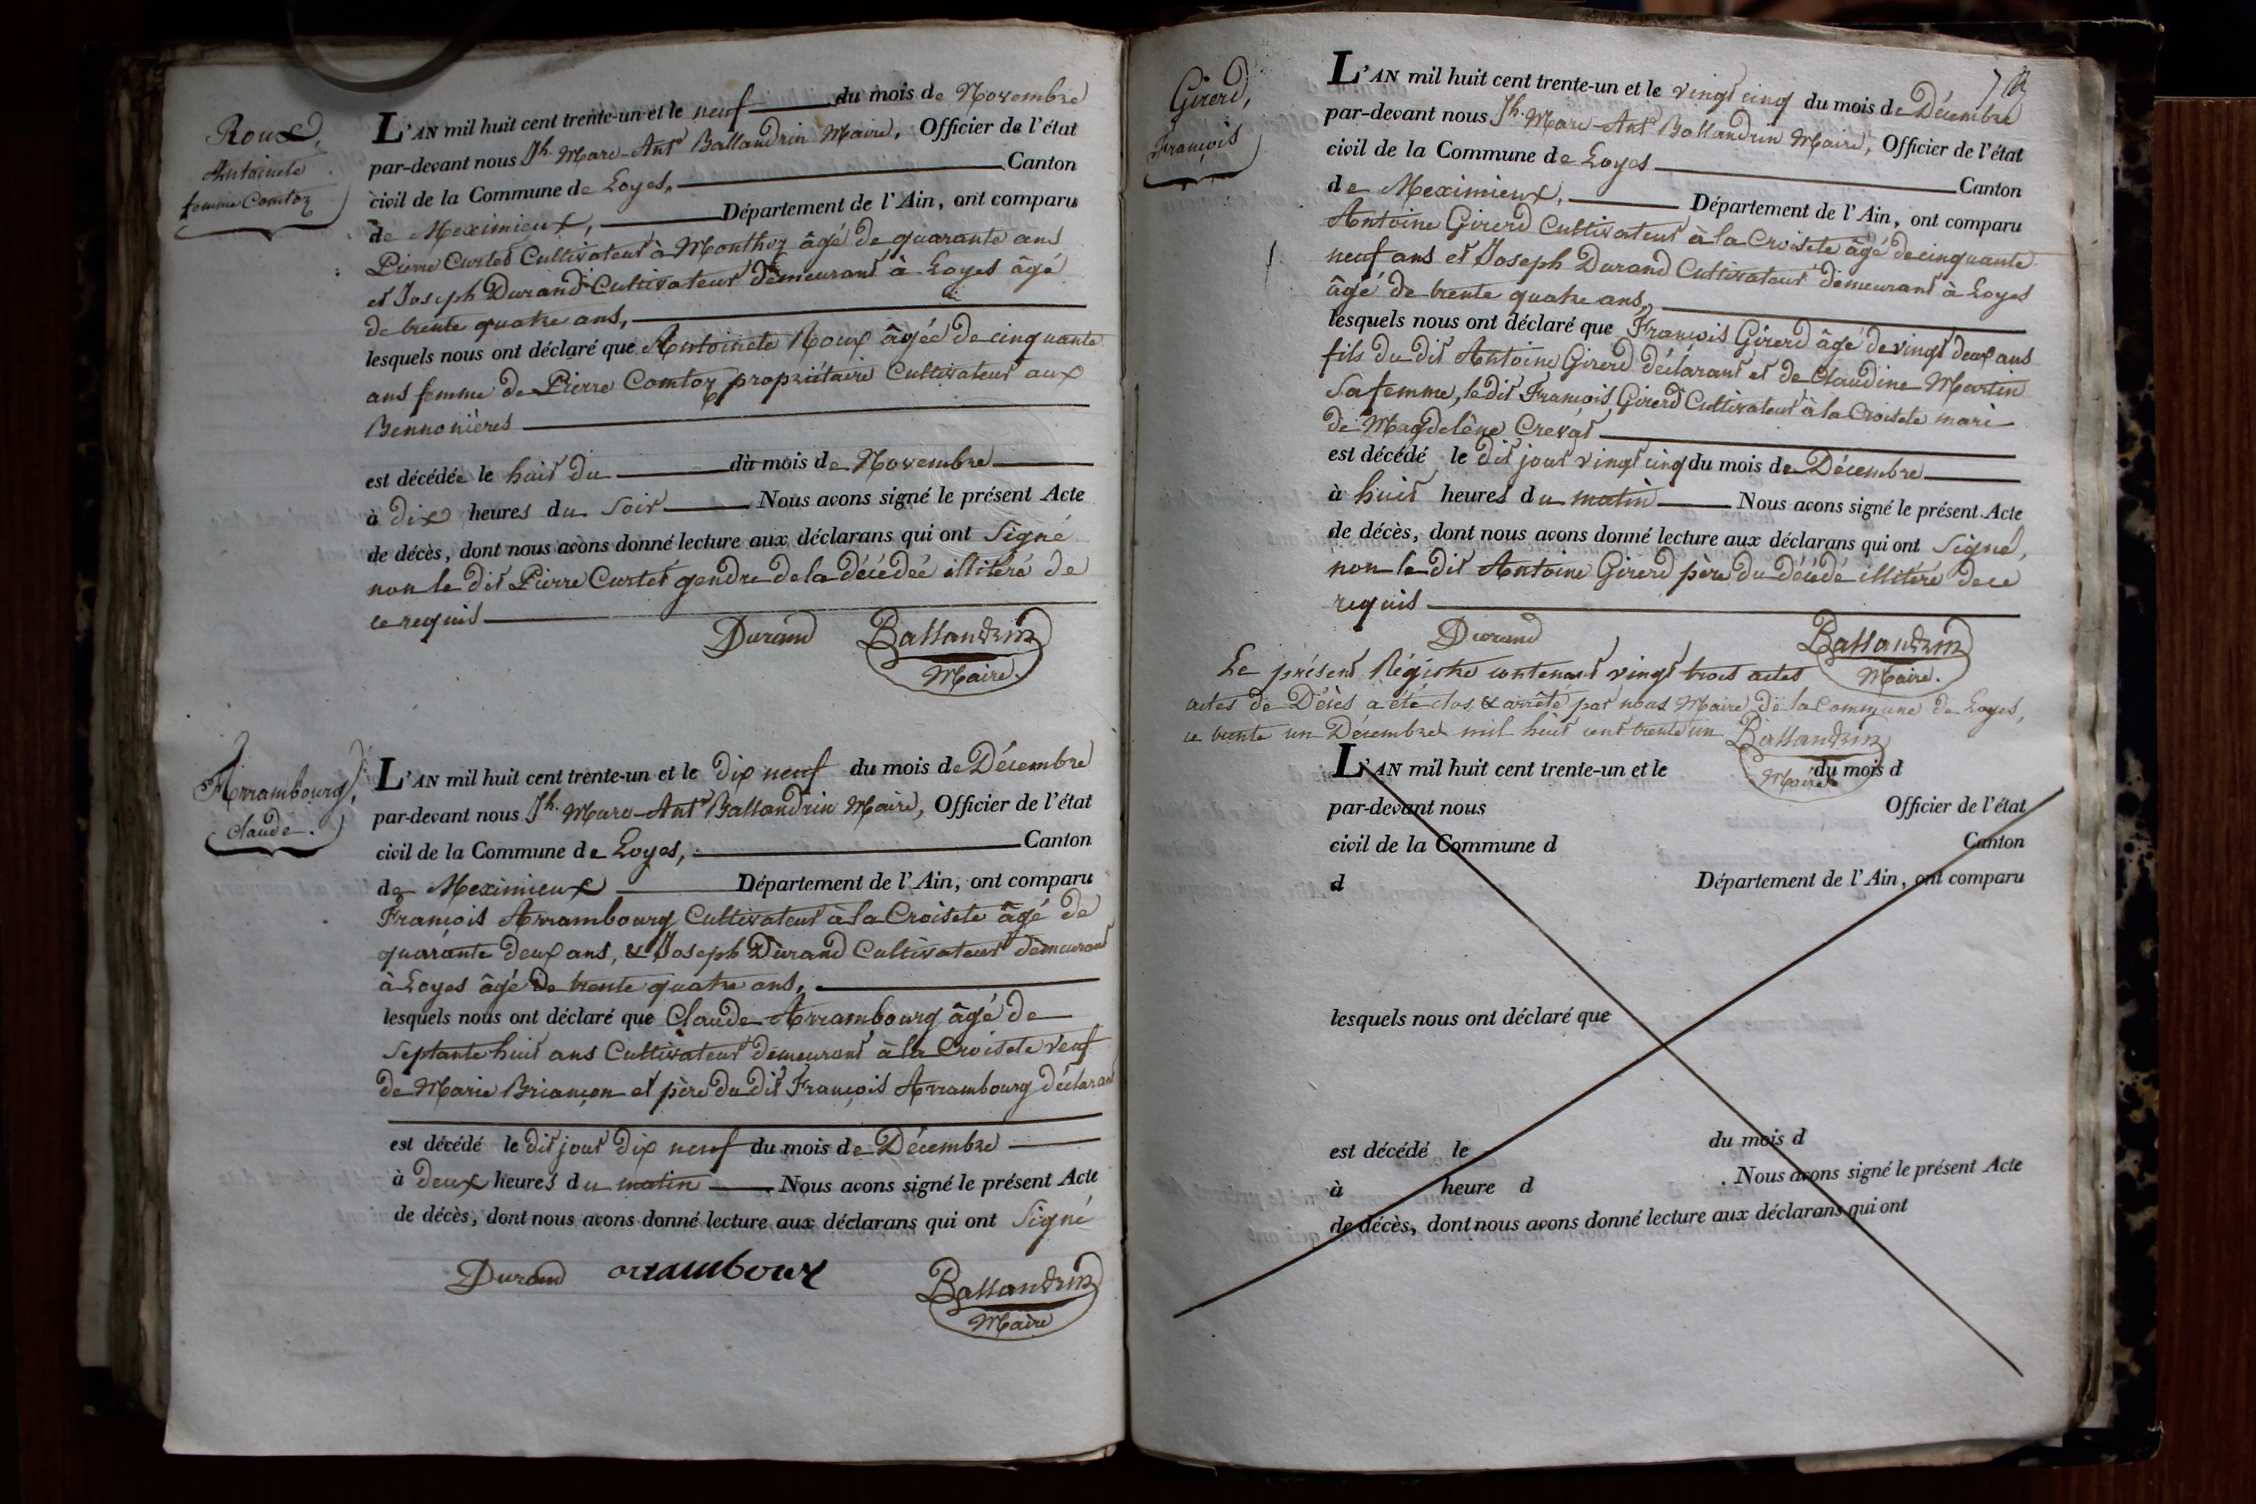 Roux,
Antoinete
femme Comtoz
L'AN mil huit cent trente-un et le neuf du mois de Novembre
par-devant nous Jh. Marc-Ant Ballandrin Maire, Officier de l'état
civil de la Commune de Loyes, Canton
de Meximieux, Département de l'Ain, ont comparu
Pierre Curtet Cultivateur à Monthoz âgé de quarante ans
et Joseph Durand Cultivateur demeurant à Loyes âgé
de trente quatre ans,
lesquels nous ont déclaré que Antoinete Roux âgée de cinquante
ans femme de Pierre Comtoz propriétaire Cultivateur aux
Bennonières
est décédée le huit du du mois de Novembre
à dix heures du soir Nous avons signé le présent Acte
de décès, dont nous avons donné lecture aux déclarans qui ont Signé
non le dit Pierre Curtet gendre de la décédée illitéré de
ce requis
Durand Ballandrin
Maire.
Arrambourg,
Claude.
L'AN mil huit cent trente-un et le dix neuf du mois de Décembre
par-devant nous Jh. Marc-Ant Ballandrin Maire, Officier de l'état
civil de la Commune de Loyes, Canton
de Meximieux Département de l'Ain, ont comparu
François Arrambourg Cultivateur à la Croisete âgé de
quarante deux ans, & Joseph Durand Cultivateur demeurant
à Loyes âgé de trente quatre ans,
lesquels nous ont déclaré que Claude Arrambourg âgé de
Septante huit ans Cultivateur demeurant à la Croisete veuf
de Marie Briançon et père du dit François Arrambourg déclarant
est décédé le dit jour dix neuf du mois de Décembre
à deux heures du matin Nous avons signé le présent Acte
de décès, dont nous avons donné lecture aux déclarans qui ont Signé
Durand arrambour Ballandrin
Maire
Girerd,
François
L'AN mil huit cent trente-un et le vingt cinq du mois de Décembre
par-devant nous Jh. Marc-Ant Ballandrin Maire, Officier de l'état
civil de la Commune de Loyes Canton
de Meximieux, Département de l'Ain, ont comparu
Antoine Girerd Cultivateur à la Croisete âgé de cinquante
neuf ans et Joseph Durand Cultivateur demeurant à Loyes
âgé de trente quatre ans,
lesquels nous ont déclaré que François Girerd âgé de vingt deux ans
fils du dit Antoine Girerd déclarant et de Claudine Martin
Sa femme, le dit François Girerd Cultivateur à la Croisete mari
de Magdelêne Crevat
est décédé le dit jour vingt cinq du mois de Décembre
à huit heures du matin Nous avons signé le présent Acte
de décès, dont nous avons donné lecture aux déclarans qui ont Signé,
non le dit Antoine Girerd père du décédé illitéré de ce
requis
Durand Ballandrin
Maire.
Le présent Régistre contenant vingt trois actes
actes de Décès a été clos & arrêté par nous Maire de la Commune de Loyes,
ce trente un Décembre mil huit cent trente un Ballandrin
Maire
L'AN mil huit cent trente-un et le du mois d
par-devant nous Officier de l'état
civil de la Commune d Canton
d Département de l'Ain, ont comparu
lesquels nous ont déclaré que
est décédé le du mois d
à heure d . Nous avons signé le présent Acte
de décès, dont nous avons donné lecture aux déclarans qui ont